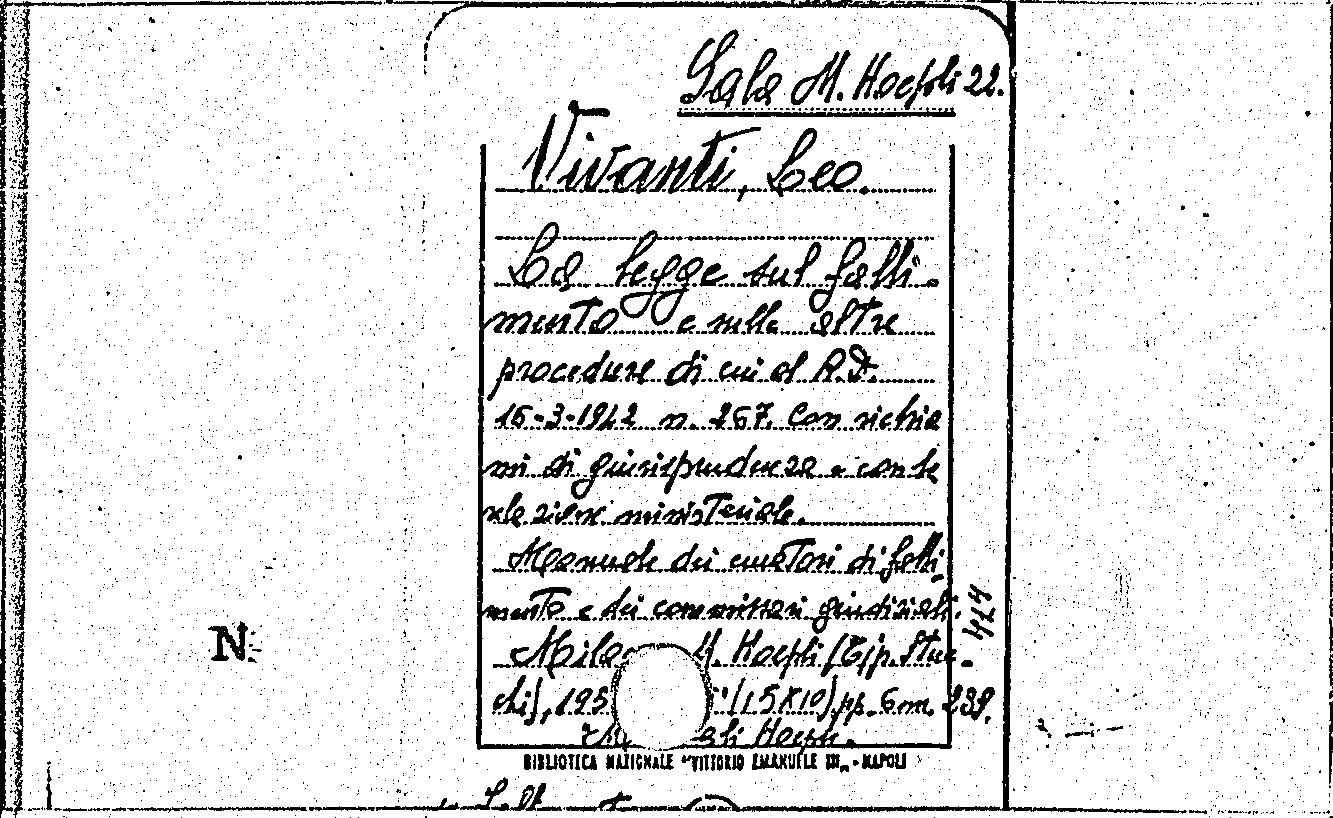 Sala M. Hoepli 22.
Vivanti, Leo.
La legge sul falli-
mento e sulle altre
procedure di cui al R.D.
16-3-1942 n. 267. Con richia
mi di giurisprudenza e con la
relazione ministeriale.
Manuale dei curatori di falli-
mento e dei commissari giudiziali.
Milano M. Hoepli (Tip. Stuc-
chi), 195 (15x10) pp. 6 nn. 239.
Hoepli.
424
N.
BIBLIOTECA NAZIONALE "VITTORIO EMANUELE III„ - NAPOLI